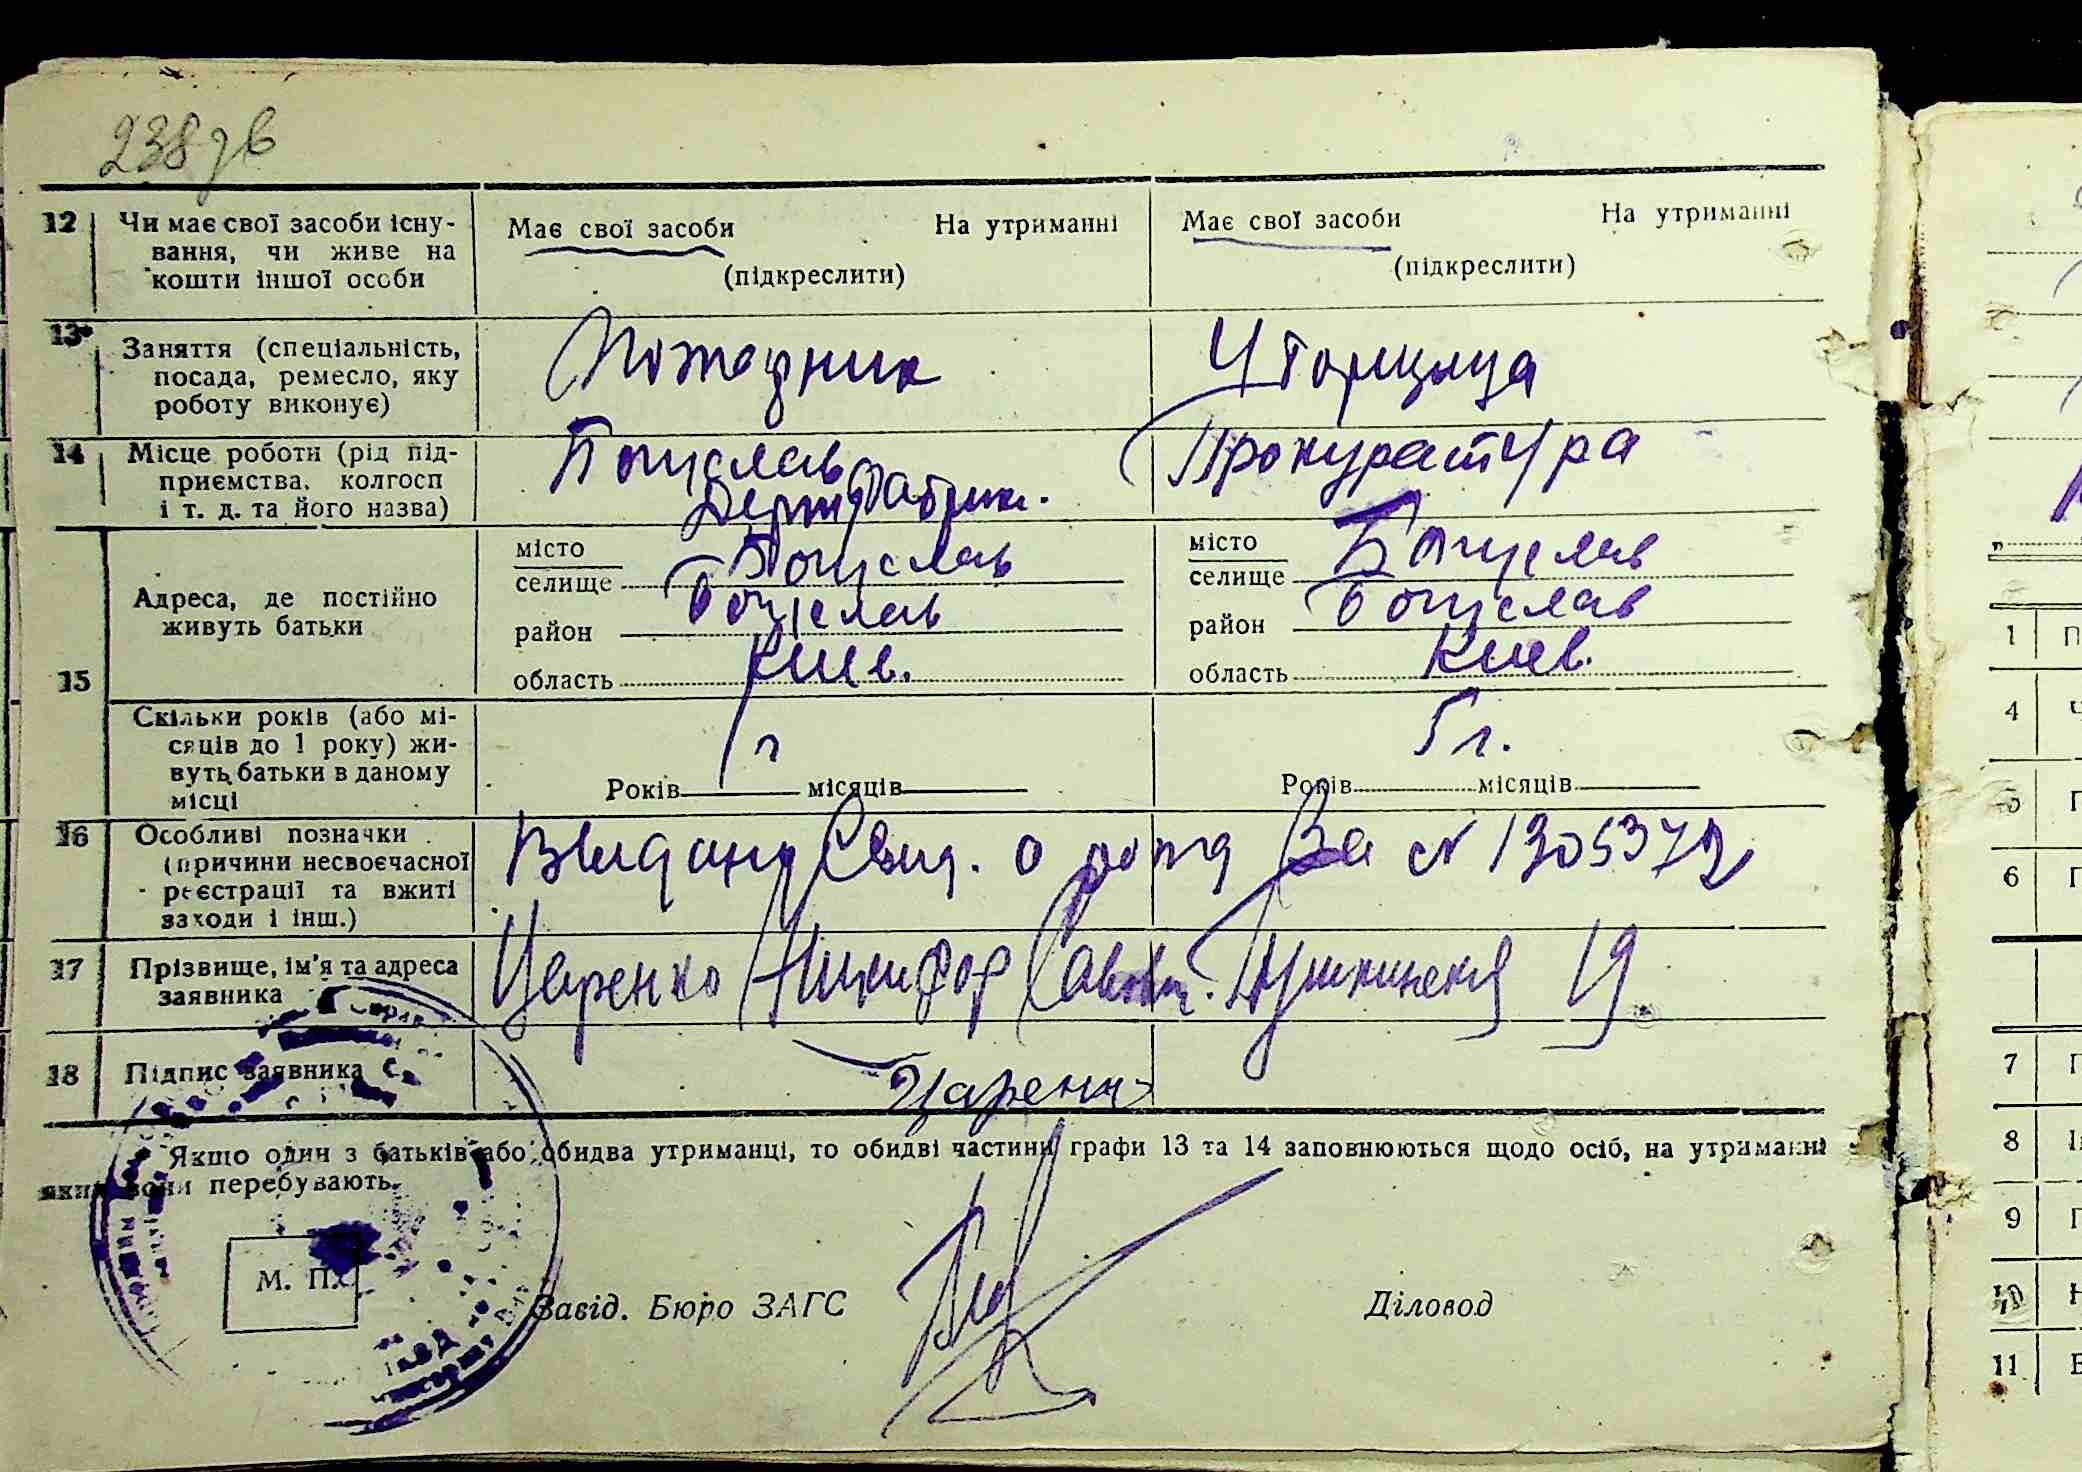 238 зв
12 Чи має свої засоби існу- Має свої засоби На утриманні Має свої засоби На утриманні
вання, чи живе на (підкреслити) (підкреслити)
кошти іншої особи
13 Заняття (спеціальність, Пожарник Уборщица
посада, ремесло, яку
роботу виконує)
14 Місце роботи (рід під- Богуслав Прокуратура
приємства, колгосп Держ фабрик.
і т. д. та його назва)
15 Адреса, де постійно
живуть батьки
місто Богуслав місто Богуслав
селище селище
район Богуслав район Богуслав
область Киев. область Киев.
Скільки років (або мі-
сяців до 1 року) жи- г 5 г.
вуть батьки в даному Років місяців Років місяців
місці
16 Особливі позначки Видано Свид. о рожд За № 1305372
(причини несвоєчасної
реєстрації та вжиті
заходи і інш.)
17 Прізвище, ім'я та адреса Царенко Никифор Савов. Пушкинская 19
заявника
18 Підпис заявника Царенко
Якщо один з батьків або обидва утриманці, то обидві частини графи 13 та 14 заповнюються щодо осіб, на утриманні
яких вони перебувають.
М. П.
Завід. Бюро ЗАГС Діловод
1 П
4 Ч
5 П
6 П
7 П
8 І
9 П
10 Н
11 В